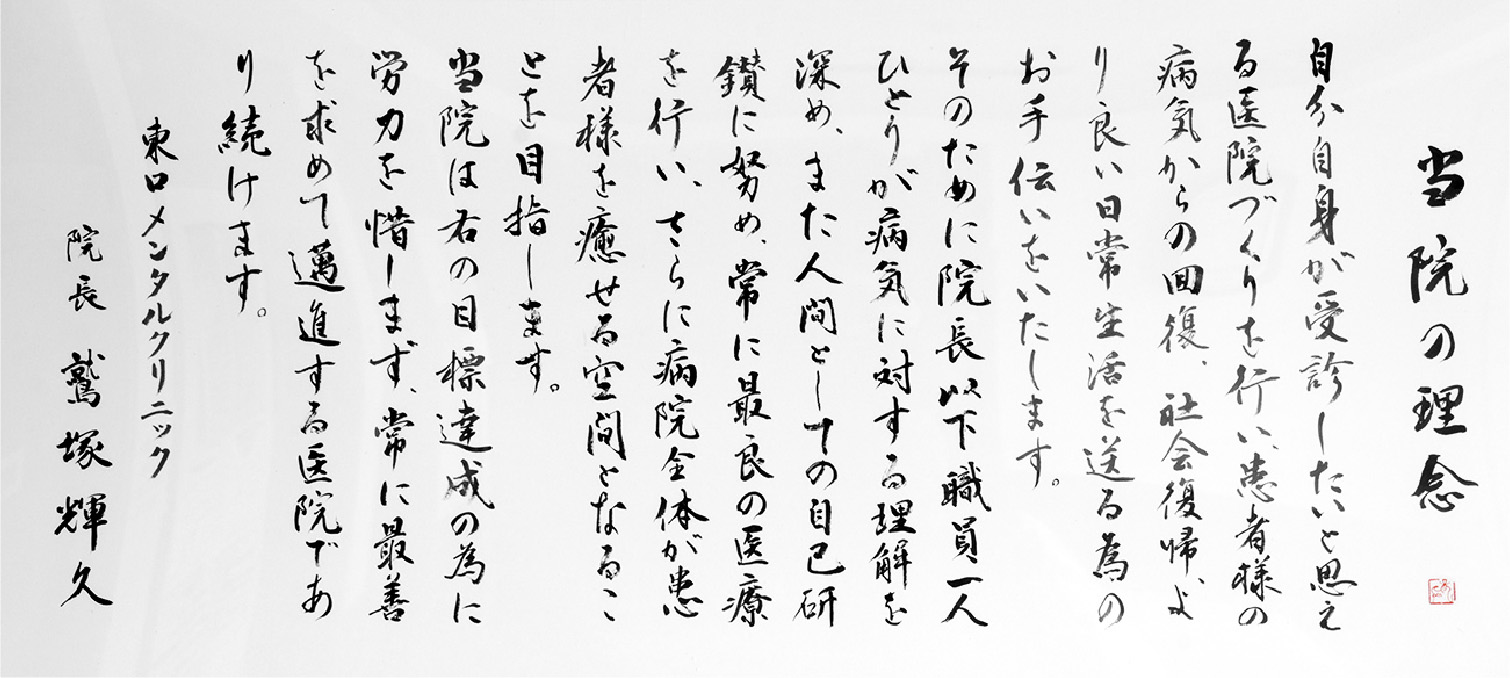 当院の理念
自分自身が受診したいと思え
る医院づくりを行い、患者様の
病気からの回復、社会復帰、よ
り良い日常生活を送る為の
お手伝いをいたします。
そのために院長以下職員一人
ひとりが病気に対する理解を
深め、また人間としての自己研
鑚に努め、常に最良の医療
を行い、さらに病院全体が患
者様を癒せる空間となるこ
とを目指します。
当院は右の目標達成の為に
労力を惜します、常に最善
を求めて邁進する医院であ
り続けます。
東口メンタルクリニック
院長 鷲塚輝久